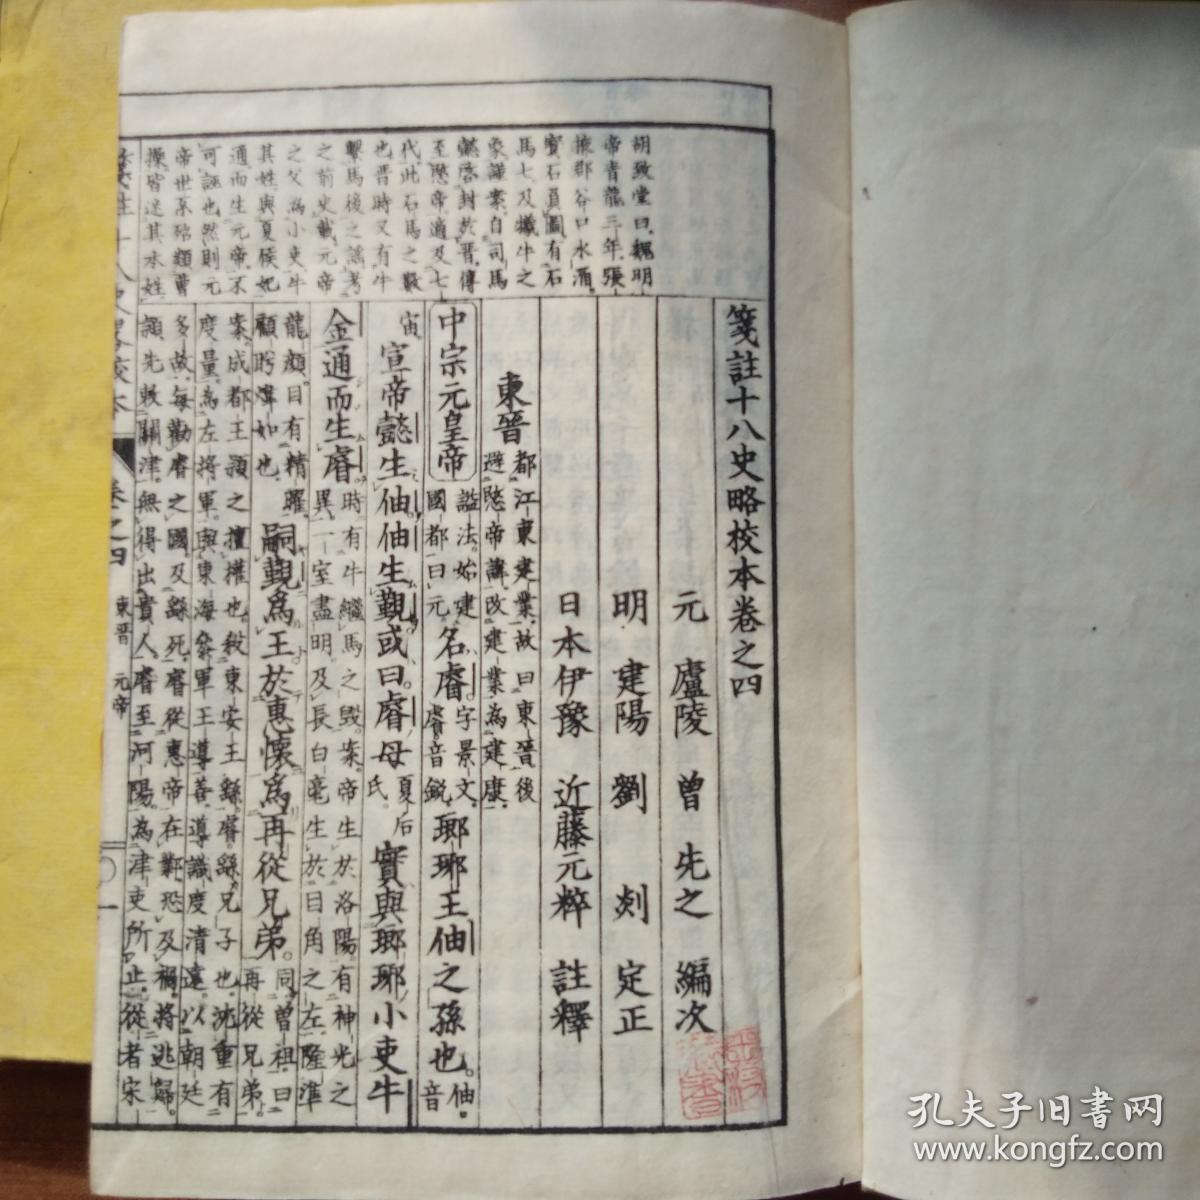 箋註十八史略校本卷之四
元 廬陵 曾 先之 編次
明 建陽 劉 剡 定正
日本伊豫 近藤元粹 註釋
東晉 都江東建業故曰東晉後
避愍帝諱改建業為建康
中宗元皇帝 謚法始建國都曰元 名睿 字景文。睿音鋭 瑯琊王伷之孫也。伷音
宙 宣帝懿生伷伷生覲。或曰。睿母 夏后氏。 實與瑯琊小吏牛
金通而生睿 時有牛繼馬之毀。案帝生於洛陽。有神光之
異一室盡明及長白毫生於日角之左隆準
龍顏。目有精曜
顧眄煒如也 嗣覲為王於惠懷為再從兄弟。 同曾祖曰再從兄弟。
案。成都王穎之擅權也。殺東安王繇。睿繇兄子也。沈重有
度量。為左將軍。與東海參軍王導善。導識度清遠。以朝廷
多故。每勸睿之國。及繇死。睿從惠帝在鄴。恐及禍。將逃歸。
穎先敕關津。無得出貴人。睿至河陽。為津吏所止。從者宋
胡致堂曰。魏明
帝青龍三年。張
掖郡谷口水湧。
寶石負圖。有石
馬七。及犧牛之
象識案。自司馬
懿啓封於晉。傳
至愍帝。適及七
代。此石馬之數
也。晉時又有牛
繫馬後之謠。考
之前史。載元帝
之父為小吏牛
其姓與夏侯妃
通而生元帝。不
可誣也。然則元
帝世系殆類曹
操皆迷其本姓
箋註十八史略校本
卷之四
東晉 元帝
一
孔夫子旧书网
www.kongfz.com